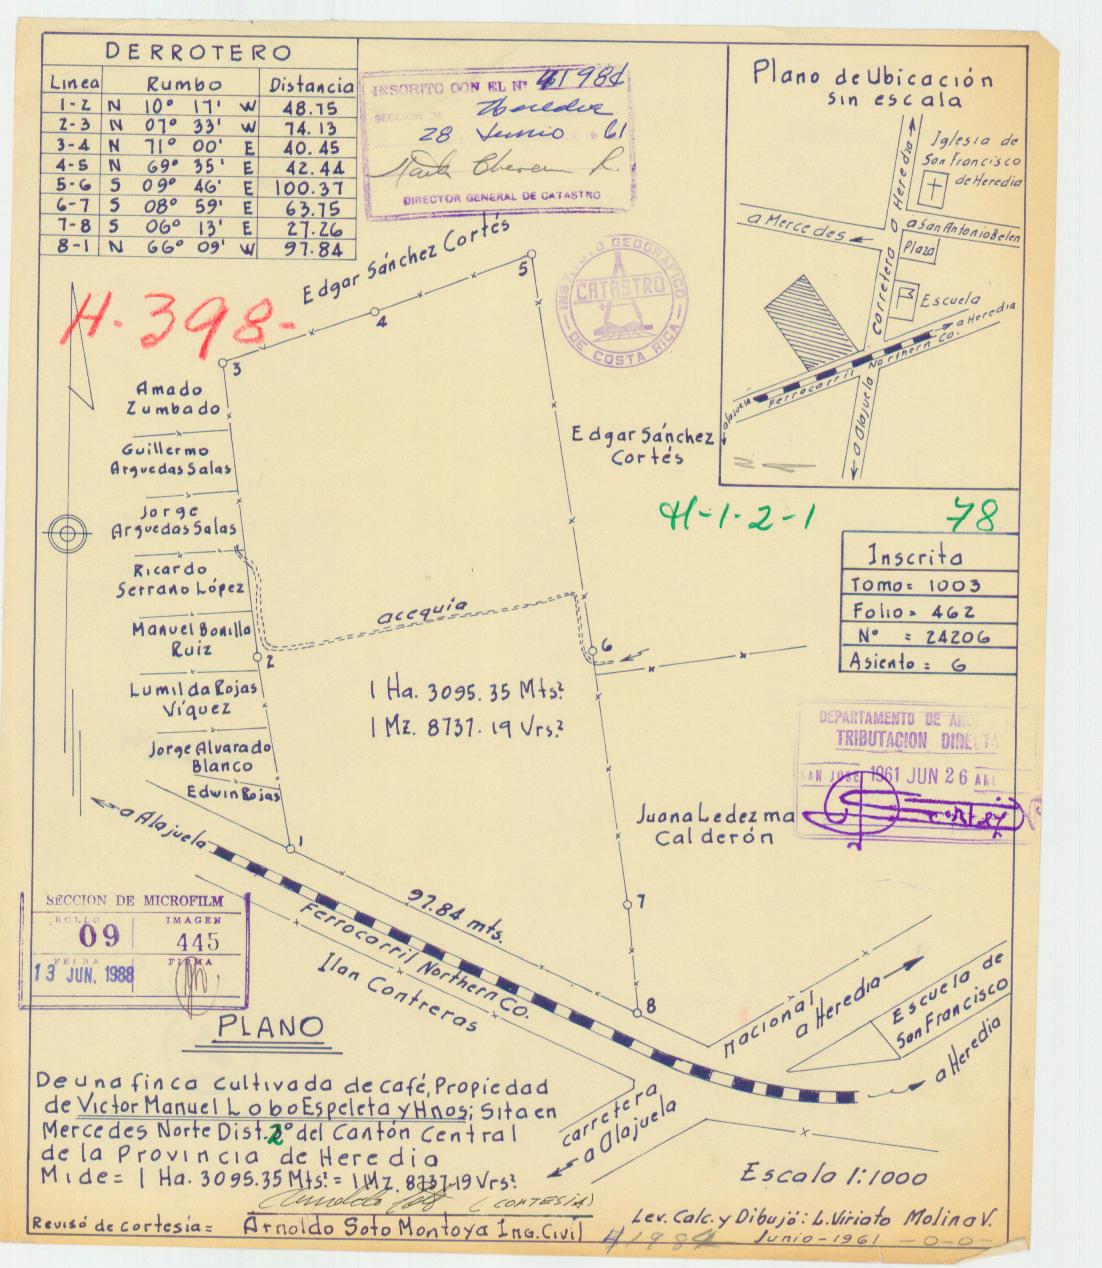 DERROTERO
Linea Rumbo Distancia
1-2 N 10° 17' W 48.75
2-3 N 07° 33' W 74.13
3-4 N 71° 00' E 40.45
4-5 N 69° 35' E 42.44
5-6 S 09° 46' E 100.37
6-7 S 08° 59' E 63.75
7-8 S 06° 13' E 27.26
8-1 N 66° 09' W 97.84
INSCRITO CON EL Nº 41984
SECCION DE
Heredia
28 Junio 61
DIRECTOR GENERAL DE CATASTRO
Plano de Ubicación
sin escala
Iglesia de
San Francisco
de Heredia
carretera a Heredia
a Mercedes
a San Antonio Belen
Plaza
Escuela
a Heredia
Ferrocarril Northern Co.
a Alajuela
a Alajuela
INSTITUTO GEOGRAFICO
CATASTRO
DE COSTA RICA
H-398-
Edgar Sánchez Cortés
5
4
3
Amado
Zumbado
Guillermo
Arguedas Salas
Jorge
Arguedas Salas
Ricardo
Serrano López
Manuel Bonilla
Ruiz
Lumilda Rojas
Víquez
Jorge Alvarado
Blanco
Edwin Rojas
Edgar Sánchez
Cortés
H-1-2-1 78
Inscrita
Tomo= 1003
Folio= 462
Nº = 24206
Asiento= 6
acequia
2
6
1 Ha. 3095.35 Mts²
1 Mz. 8737.19 Vrs²
DEPARTAMENTO DE
TRIBUTACION
SAN JOSE 1961 JUN 26
Juana Ledezma
Calderón
a Alajuela
1
7
8
97.84 mts.
Ferrocarril Northern Co.
Ilan Contreras
SECCION DE MICROFILM
ROLLO IMAGEN
09 445
FECHA FIRMA
13 JUN. 1988
Nacional
a Heredia
Escuela de
San Francisco
a Heredia
carretera
a Alajuela
PLANO
De una finca cultivada de café, Propiedad
de Victor Manuel Lobo Espeleta y Hnos; Sita en
Mercedes Norte Dist. 2º del Cantón Central
de la Provincia de Heredia
Mide= 1 Ha. 3095.35 Mts² = 1 Mz. 8737.19 Vrs²
(CORTESIA)
Revisó de cortesía= Arnoldo Soto Montoya Ing. Civil
Escala 1:1000
Lev. Calc. y Dibujó: L. Viriato Molina V.
Junio-1961 -0-0-
41984